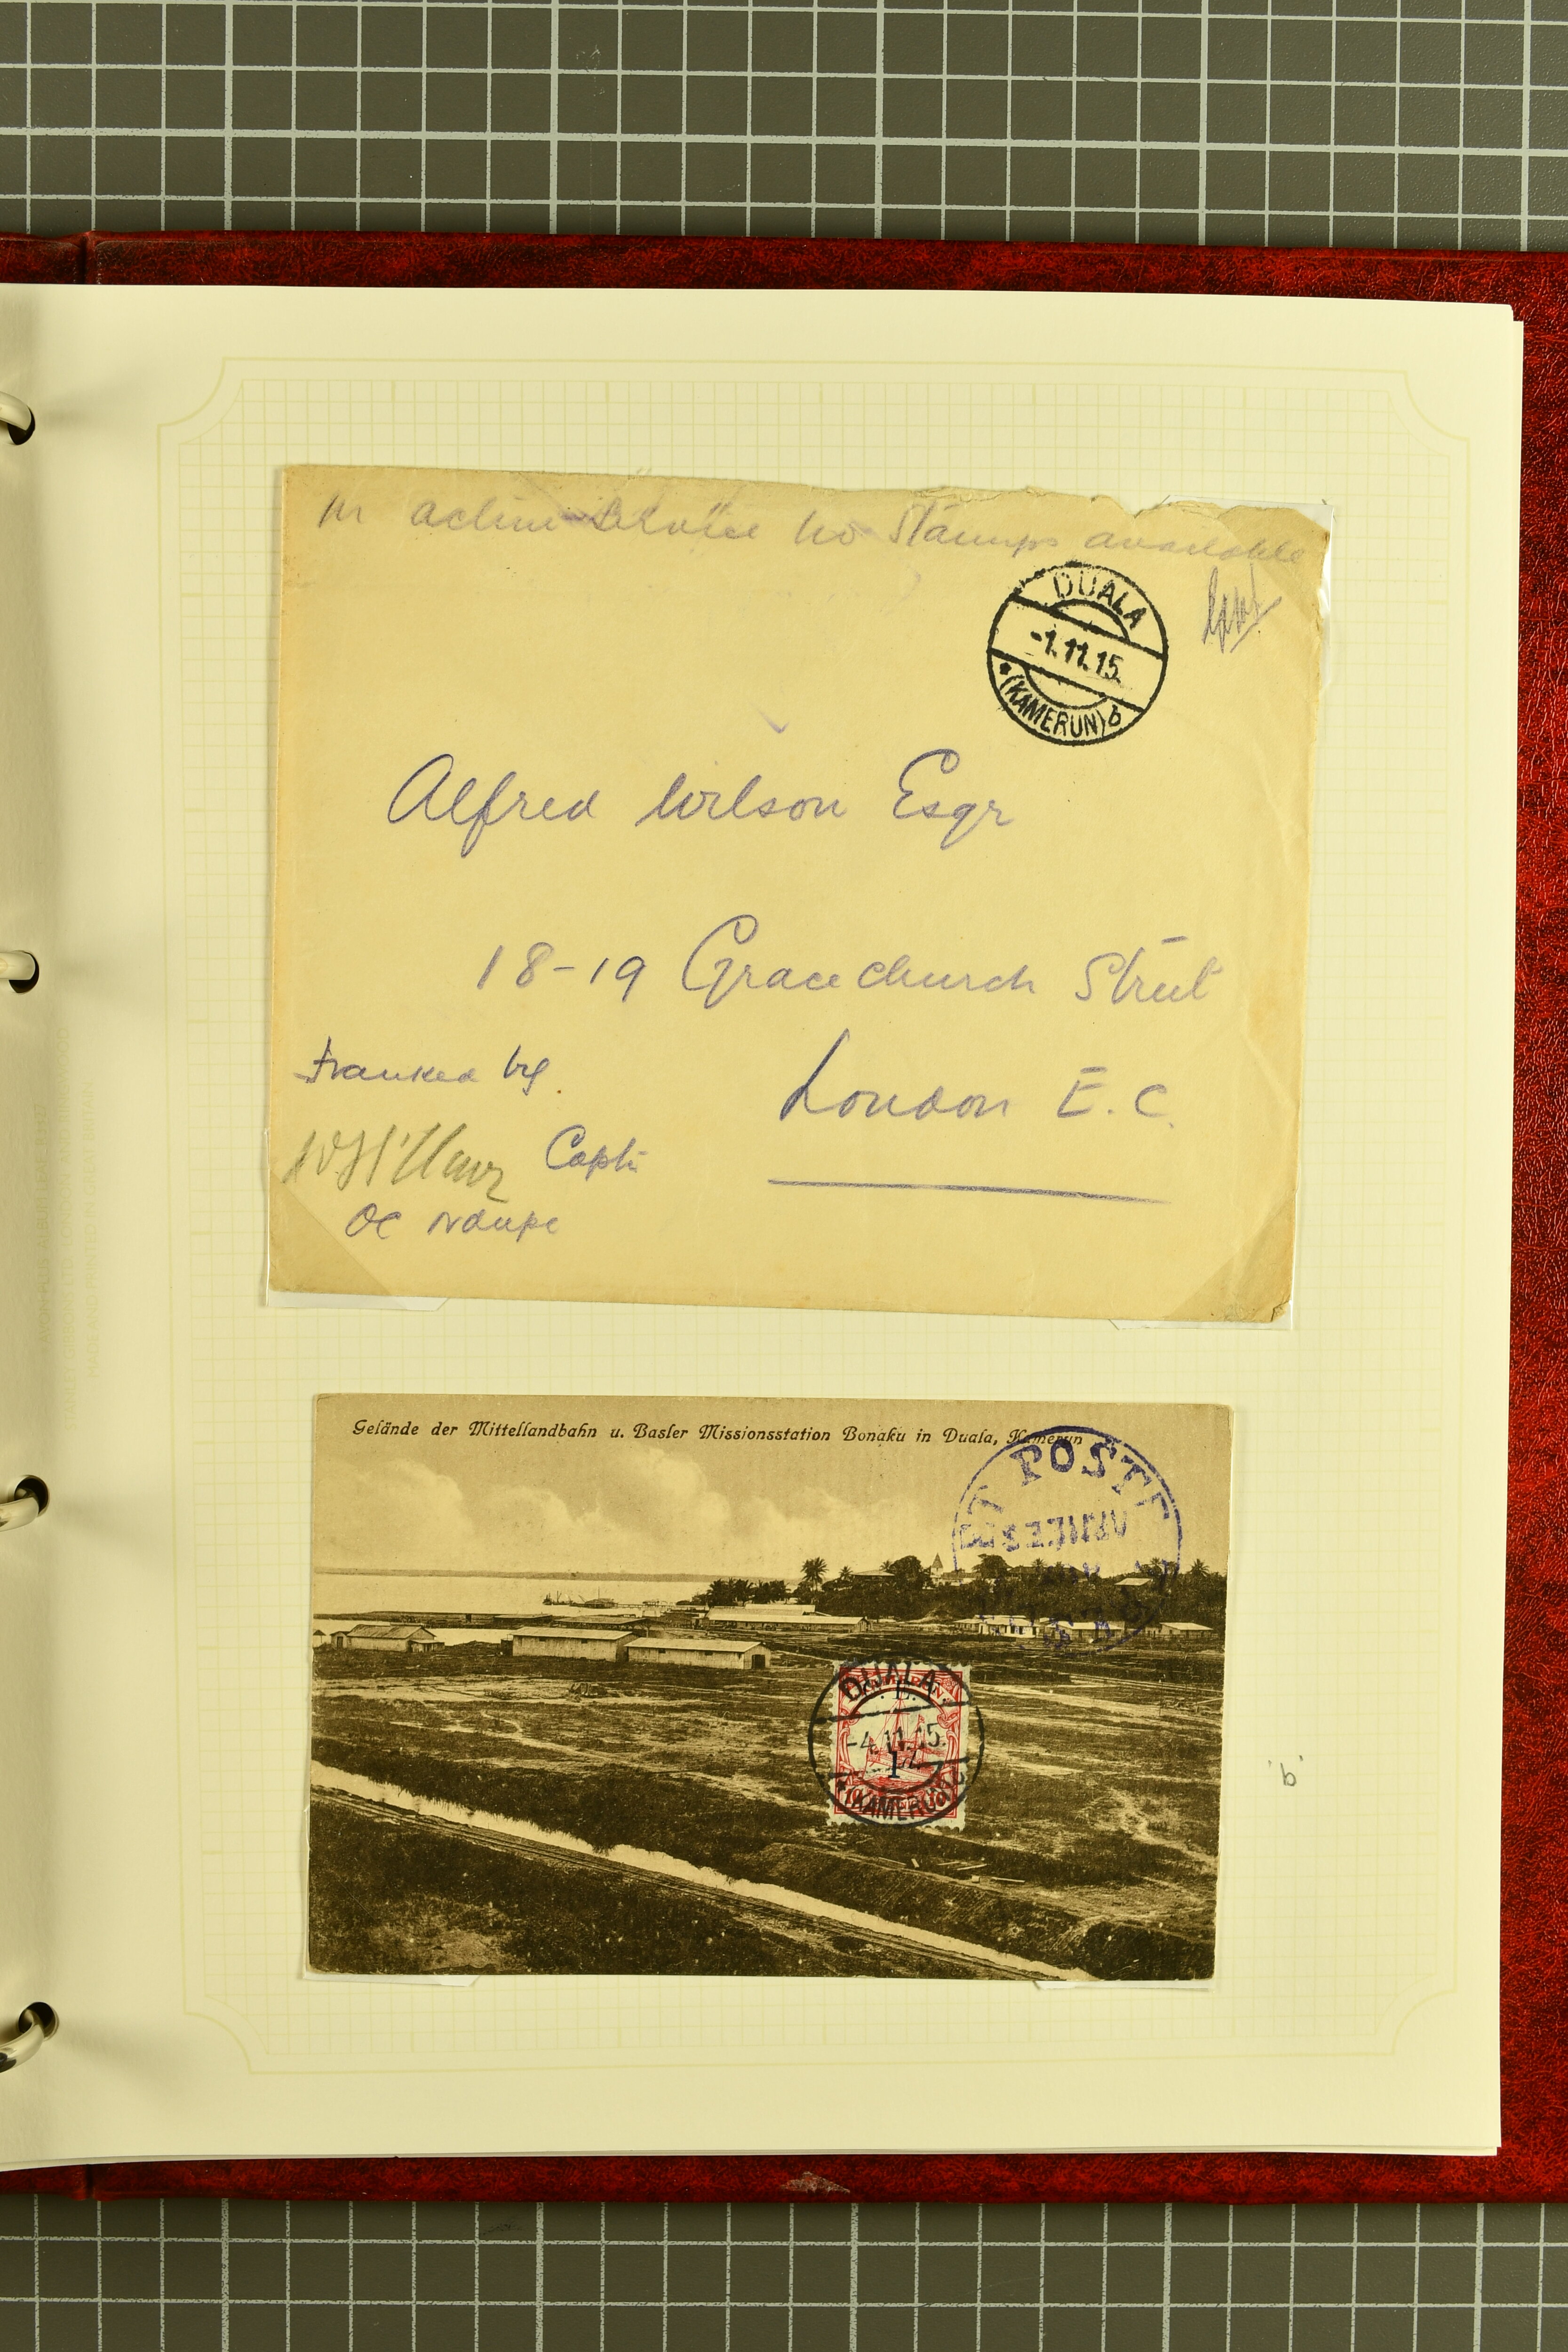 On active service no stamps available
DUALA
-1.11.15.
(KAMERUN) b
Alfred Wilson Esqr
18-19 Gracechurch Street
London E.C.
Franked by
Capt:
OC Ndupe
Gelände der Mittellandbahn u. Basler Missionsstation Bonaku in Duala, Kamerun
POST
DUALA
-4.11.15.
(KAMERUN)
'b'